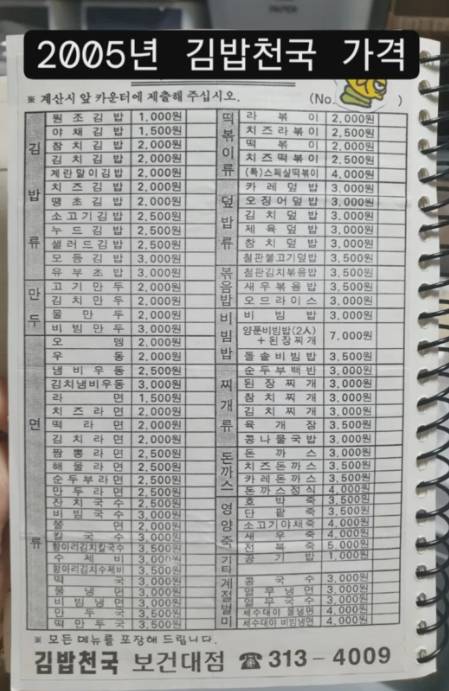 2005년 김밥천국 가격
※ 계산시 앞 카운터에 제출해 주십시오. (No. )
김밥류
원조김밥 1,000원
야채김밥 1,500원
참치김밥 2,000원
김치김밥 2,000원
계란말이김밥 2,000원
치즈김밥 2,000원
땡초김밥 2,000원
소고기김밥 2,500원
누드김밥 2,500원
샐러드김밥 2,500원
모듬김밥 3,000원
유부초밥 3,000원
만두
고기만두 2,000원
김치만두 2,000원
물만두 2,000원
비빔만두 3,000원
면류
오뎅 2,000원
우동 2,000원
냄비우동 2,500원
김치냄비우동 3,000원
라면 1,500원
치즈라면 2,000원
떡라면 2,000원
김치라면 2,000원
짬뽕라면 2,500원
해물라면 2,500원
순두부라면 2,500원
만두라면 2,500원
잔치국수 2,500원
비빔국수 3,000원
쫄면 2,000원
칼국수 3,000원
항아리김치칼국수 3,500원
수제비 3,000원
항아리김치수제비 3,500원
떡국 3,000원
물냉면 3,000원
비빔냉면 3,000원
만두국 3,500원
떡만두국 3,500원
떡볶이류
라볶이 2,000원
치즈라볶이 2,500원
떡볶이 2,000원
치즈떡볶이 2,500원
(특)스페샬떡볶이 4,000원
덮밥류
카레덮밥 3,000원
오징어덮밥 3,000원
김치덮밥 3,000원
제육덮밥 3,000원
참치덮밥 3,000원
철판불고기덮밥 3,500원
볶음밥
철판김치볶음밥 3,500원
새우볶음밥 3,500원
오므라이스 3,000원
비빔밥
비빔밥 3,000원
양푼비빔밥(2人)
+된장찌개 7,000원
돌솥비빔밥 3,500원
찌개류
순두부백반 3,000원
된장찌개 3,000원
참치찌개 3,000원
김치찌개 3,000원
육개장 3,500원
콩나물국밥 3,000원
돈까스
돈까스 3,500원
치즈돈까스 3,500원
카레돈까스 3,500원
돈까스정식 4,000원
영양죽
호박죽 3,500원
단팥죽 3,500원
소고기야채죽 4,000원
새우죽 4,000원
전복죽 5,000원
기타
공기밥 1,000원
계절별미
콩국수 3,000원
열무냉면 3,000원
열무국수 3,000원
세수대야 물냉면 4,000원
세수대야 비빔냉면 4,000원
※ 모든 메뉴를 포장해 드립니다.
김밥천국 보건대점 ☎ 313-4009